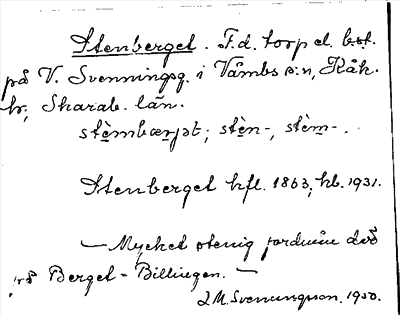 Stenberget. F.d. torp el. bst.
på V. Svenningsg. i Våmbs s:n, Kåk.
hr, Skarab. län.
stèmbærjət; stèn-, stèm-.
Stenberget hfl. 1863; hb. 1931.
— Mycket stenig jordmån
på Berget - Billingen. —
J.M. Svenungsson. 1930.